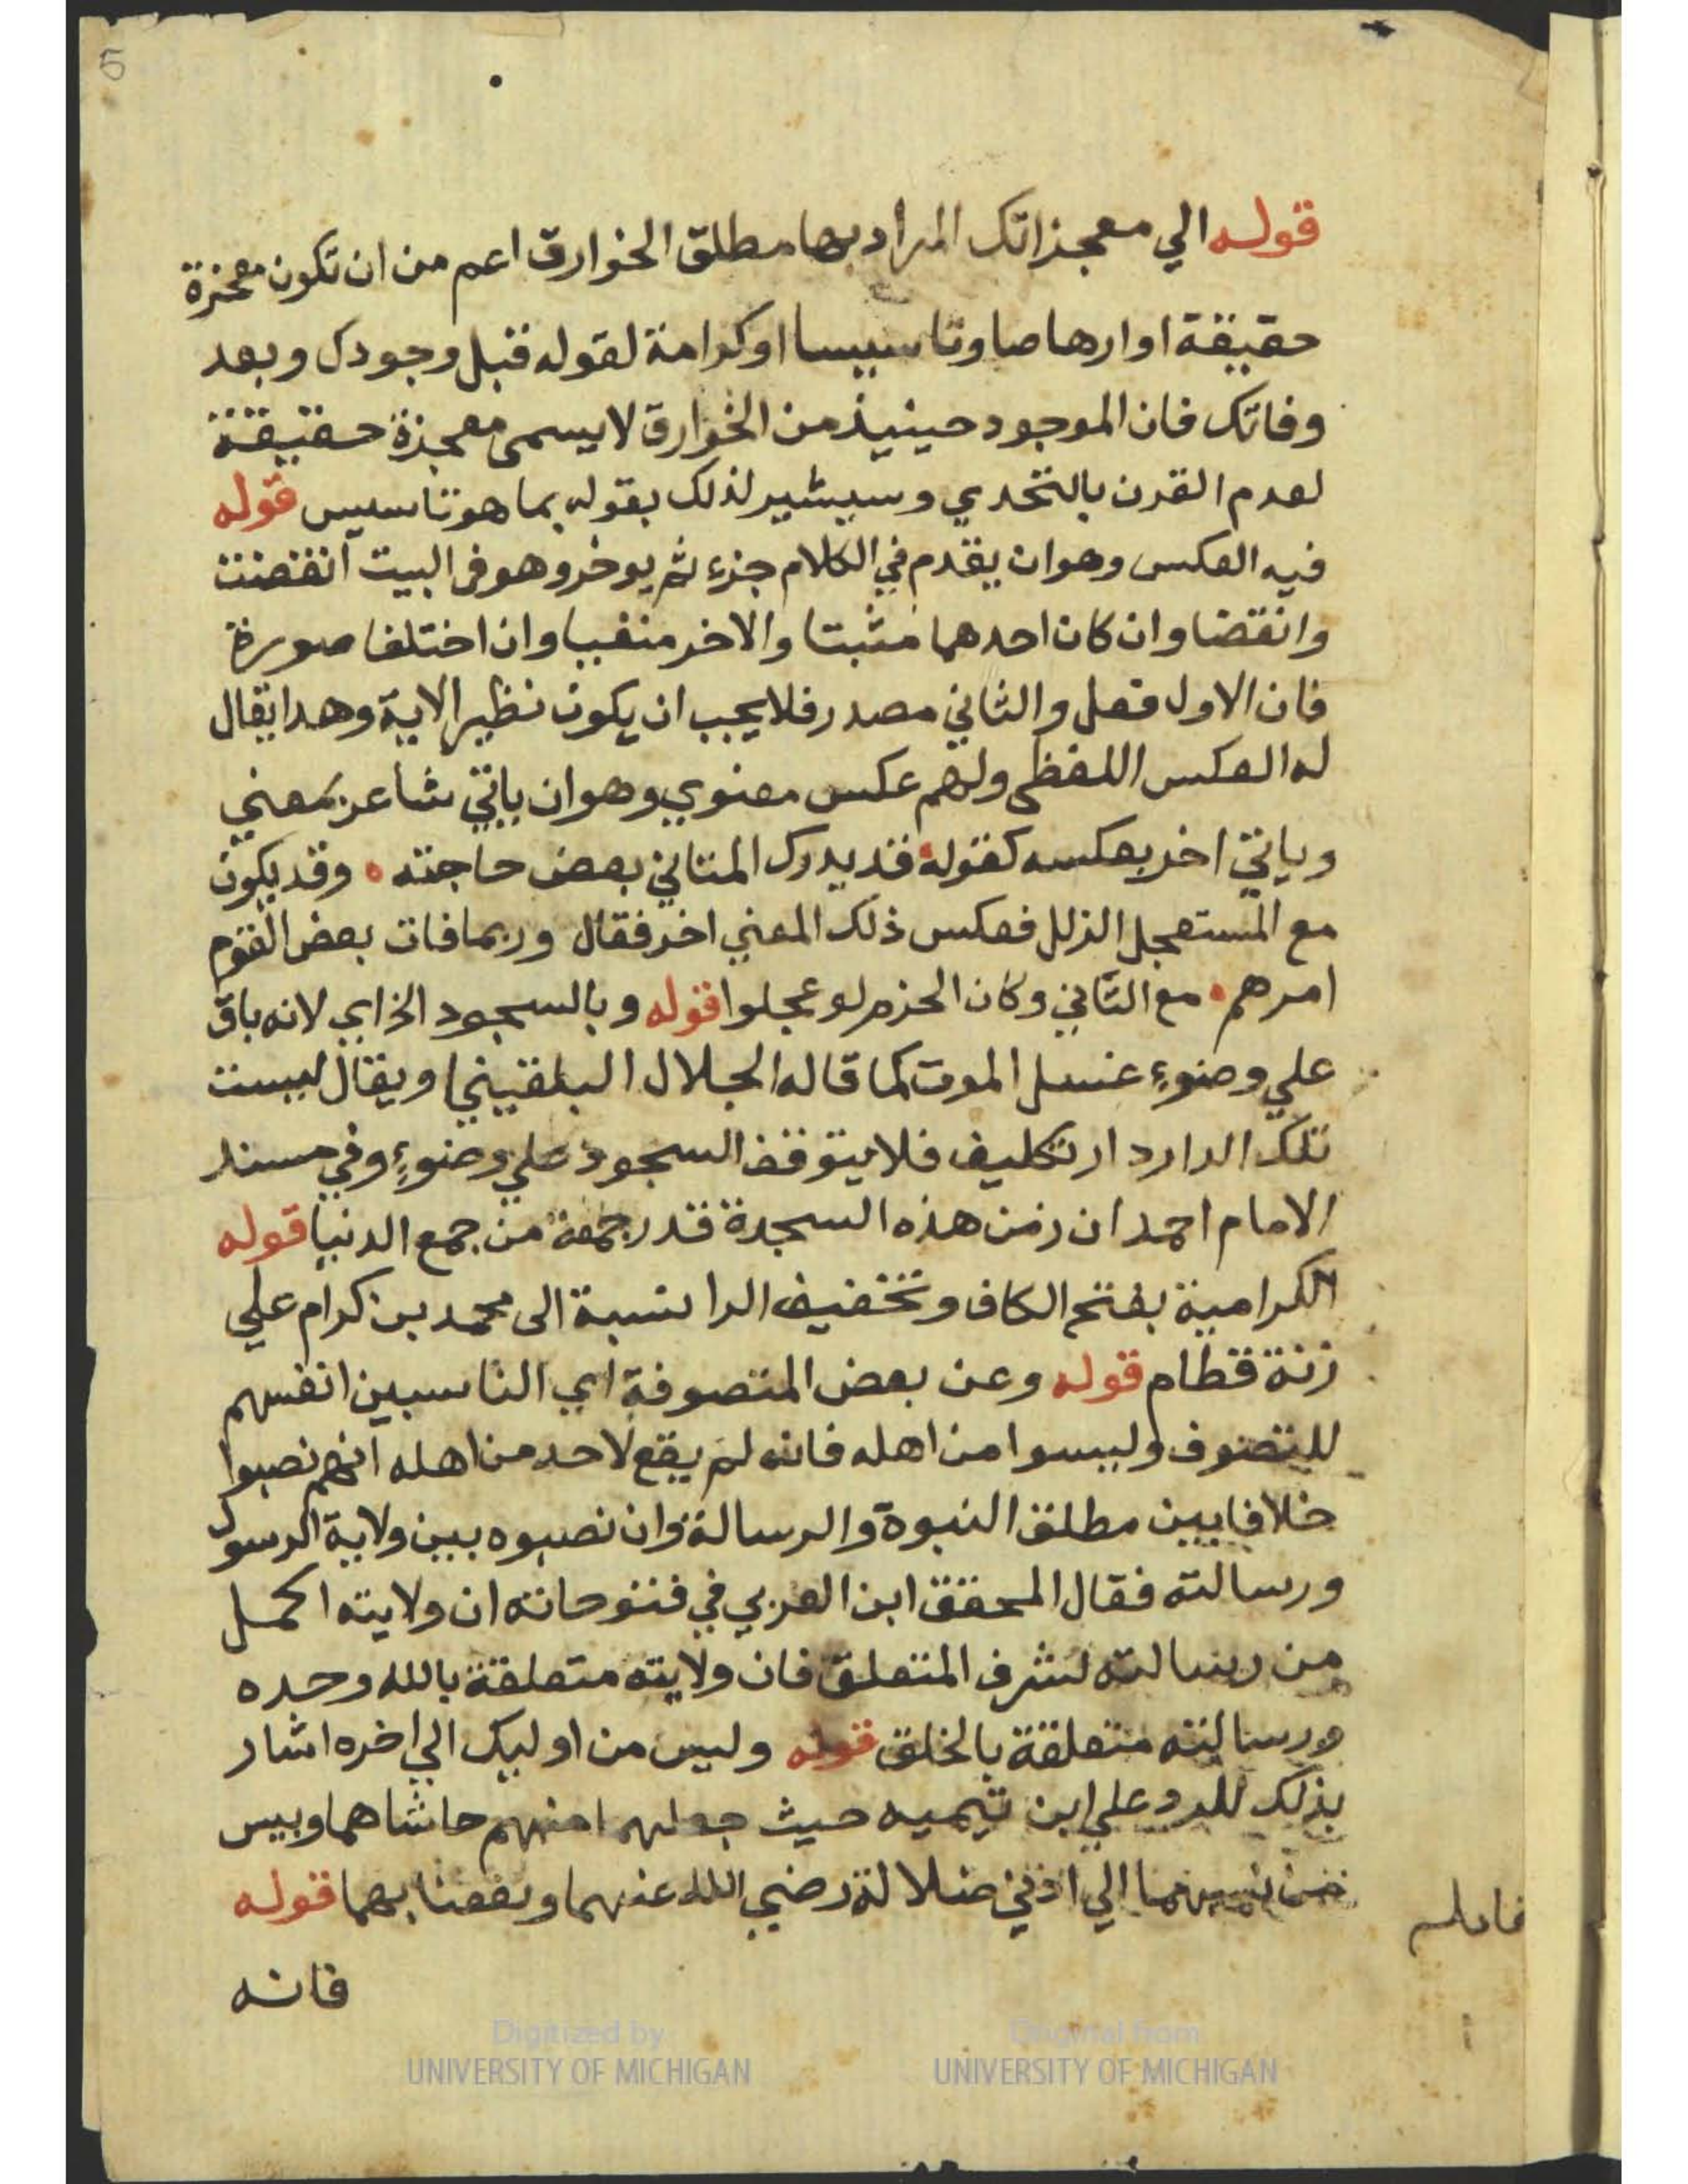 5
قوله الي معجزاتك المراد بها مطلق الخوارق اعم من ان تكون معجزة
حقيقة او ارهاصا وتاسيسا او كرامة لقوله قبل وجودك وبعد
وفاتك فان الموجود حينيذ من الخوارق لا يسمى معجزة حقيقة
لعدم القرن بالتحدي وسيشير لذلك بقوله بما هو تاسيس قوله
فيه العكس وهو ان يقدم في الكلام جزء ثم يوخر وهو في البيت انقضت
وانقضا وان كان احدهما مثبتا والاخر منفيا وان اختلفا صورة
فان الاول فعل والثاني مصدر فلا يجب ان يكون نظير الاية وهدا يقال
له العكس اللفظي ولهم عكس معنوي وهو ان ياتي شاعر بمعني
وياتي اخر بعكسه كقوله قد يدرك المتاني بعض حاجته • وقد يكون
مع المستعجل الزلل فعكس ذلك المعني اخر فقال وربما فات بعض القوم
امرهم • مع التاني وكان الحزم لو عجلوا قوله وبالسجود الخ اي لانه باق
علي وضوء غسل الموت كما قاله الجلال البلقيني ويقال ليست
تلك الدار دار تكليف فلا يتوقف السجود علي وضوء وفي مسند
الامام احمد ان زمن هذه السجدة قدر جمعة من جمع الدنيا قوله
الكرامية بفتح الكاف وتخفيف الرا نسبة الى محمد بن كرام علي
زنة قطام قوله وعن بعض المتصوفة اي الناسبين انفسهم
للتصوف وليسوا من اهله فانه لم يقع لاحد من اهله انهم نصبوا
خلافا بين مطلق النبوة والرسالة وان نصبوه بين ولاية الرسول
ورسالته فقال المحقق ابن العربي في فتوحاته ان ولايته اكمل
من رسالته لشرف المتعلق فان ولايته متعلقة بالله وحده
ورسالته متعلقة بالخلق قوله وليس من اوليك الي اخره اشار
بذلك للرد علي ابن تيميه حيث جعلهما منهم حاشاهما وبيس
من نسبهما الي ادني ضلالة رضي الله عنهما ونفعنا بهما قوله
فانه
Digitized by
UNIVERSITY OF MICHIGAN
Original from
UNIVERSITY OF MICHIGAN